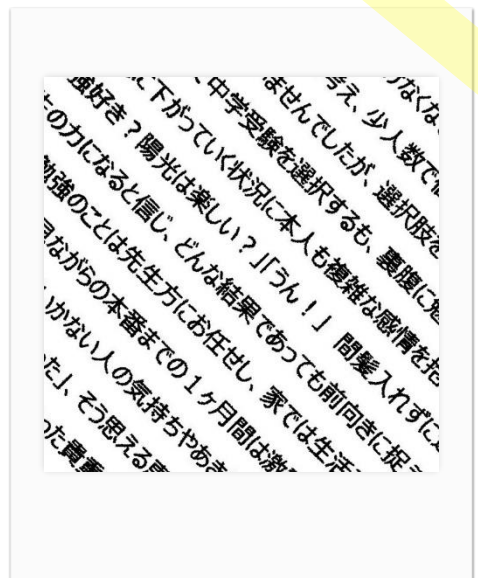 なくな
考え、少人数で
ませんでしたが、選択肢を
、中学受験を選択するも、裏腹に
に下がっていく状況に本人も複雑な感情を抱
強好き？陽光は楽しい？」「うん！」 間髪入れずに
の力になると信じ、どんな結果であっても前向きに捉え
勉強のことは先生方にお任せし、家では生活
ながらの本番までの１ヶ月間は激
いかない人の気持ちやあき
た」、そう思える
った貴重